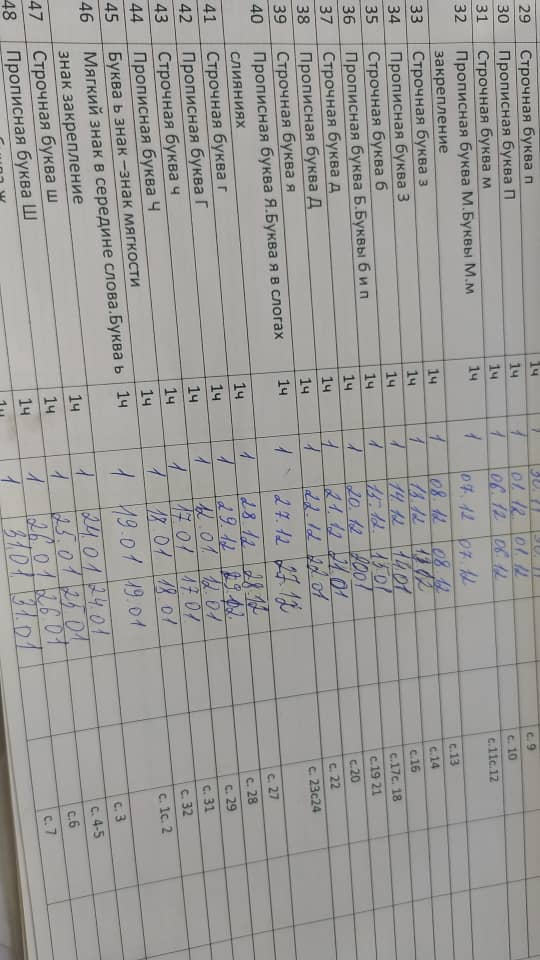 29 Строчная буква п 1ч 1 30.11 30.11 с. 9
30 Прописная буква П 1ч 1 01.12 01.12 с. 10
31 Строчная буква м 1ч 1 06.12 с.11с.12
32 Прописная буква М.Буквы М.м 1ч 1 07.12 07.12 с.13
закрепление
33 Строчная буква з 1ч 1 08.12 08.12 с.14
34 Прописная буква З 1ч 1 13.12 с.16
35 Строчная буква б 1ч 1 14.12 14.01 с.17с. 18
36 Прописная буква Б.Буквы б и п 1ч 1 15.12 15.01 с.19 21
37 Строчная буква д 1ч 1 20.12 20.01 с.20
38 Прописная буква Д 1ч 1 21.12 21.01 с. 22
39 Строчная буква я 1ч 1 22.12 22.01 с. 23с24
40 Прописная буква Я.Буква я в слогах 1ч 1 27.12 27.12 с. 27
слияниях
41 Строчная буква г 1ч 1 28.12 28.12 с. 28
42 Прописная буква Г 1ч 1 29.12 с. 29
43 Строчная буква ч 1ч 1 12.01 12.01 с. 31
44 Прописная буква Ч 1ч 1 17.01 17.01 с. 32
45 Буква ь знак –знак мягкости 1ч 1 18.01 18.01 с. 1с. 2
46 Мягкий знак в середине слова.Буква ь 1ч 1 19.01 19.01 с. 3
знак закрепление
47 Строчная буква ш 1ч 1 24.01 24.01 с. 4-5
48 Прописная буква Ш 1ч 1 25.01 25.01 с.6
1ч 1 26.01 26.01 с. 7
1ч 1 31.01 31.01